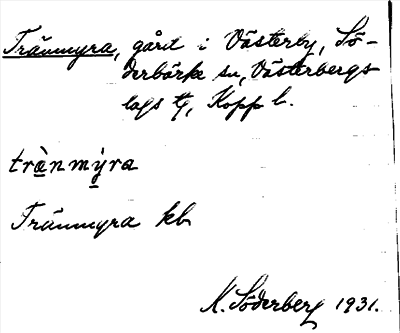 Tränmyra, gård i Västerby, Sö-
derbärke sn, Västerbergs-
lags tg, Kopp l.
trànmỳra
Tränmyra kb
N. Söderberg 1931.